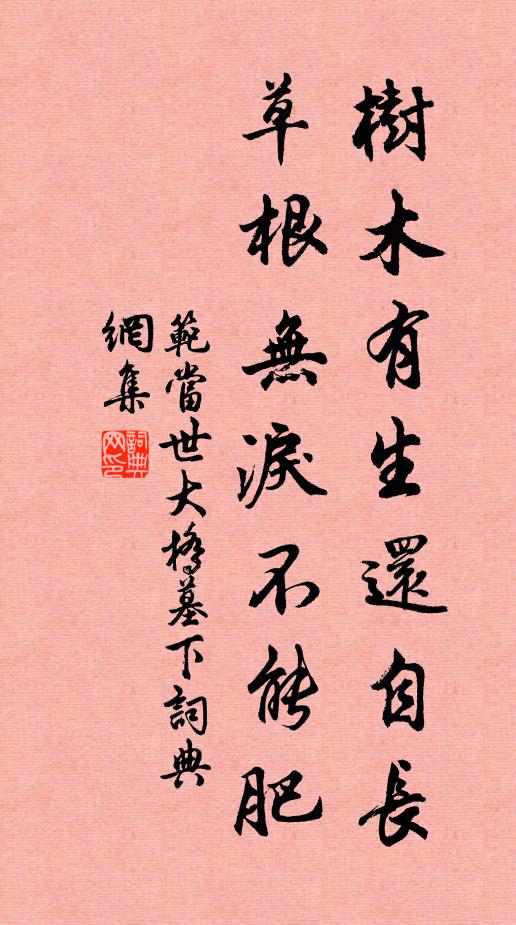 樹木有生還自長
草根無淚不能肥
範當世大橋墓下詞典
網集
詞典網印